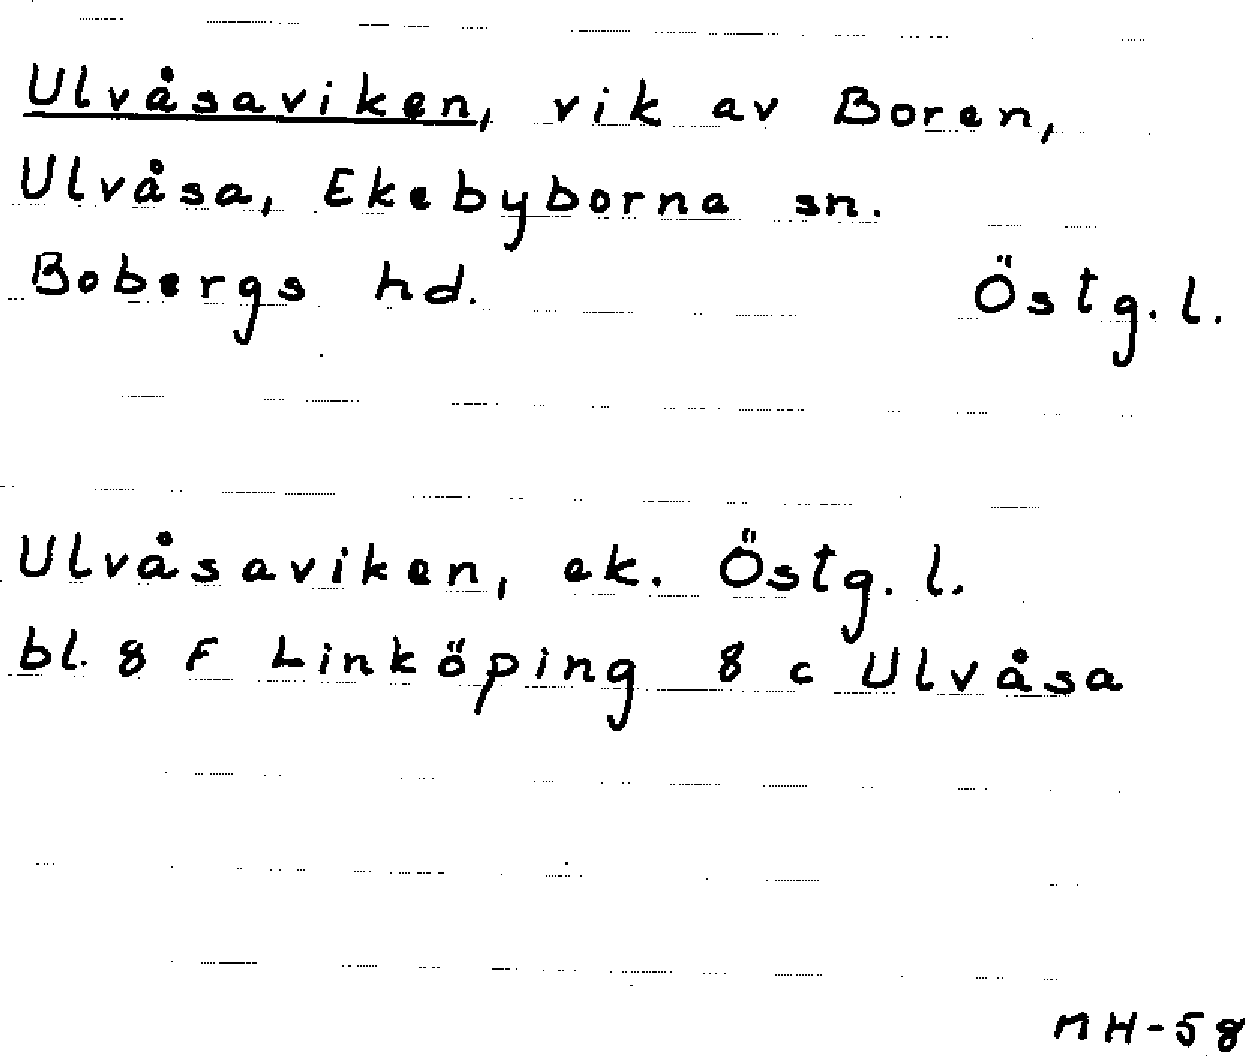 Ulvåsaviken, vik av Boren,
Ulvåsa, Ekebyborna sn.
Bobergs hd. Östg. l.
Ulvåsaviken, ek. Östg. l.
bl. 8 F Linköping 8 c Ulvåsa
MH-58